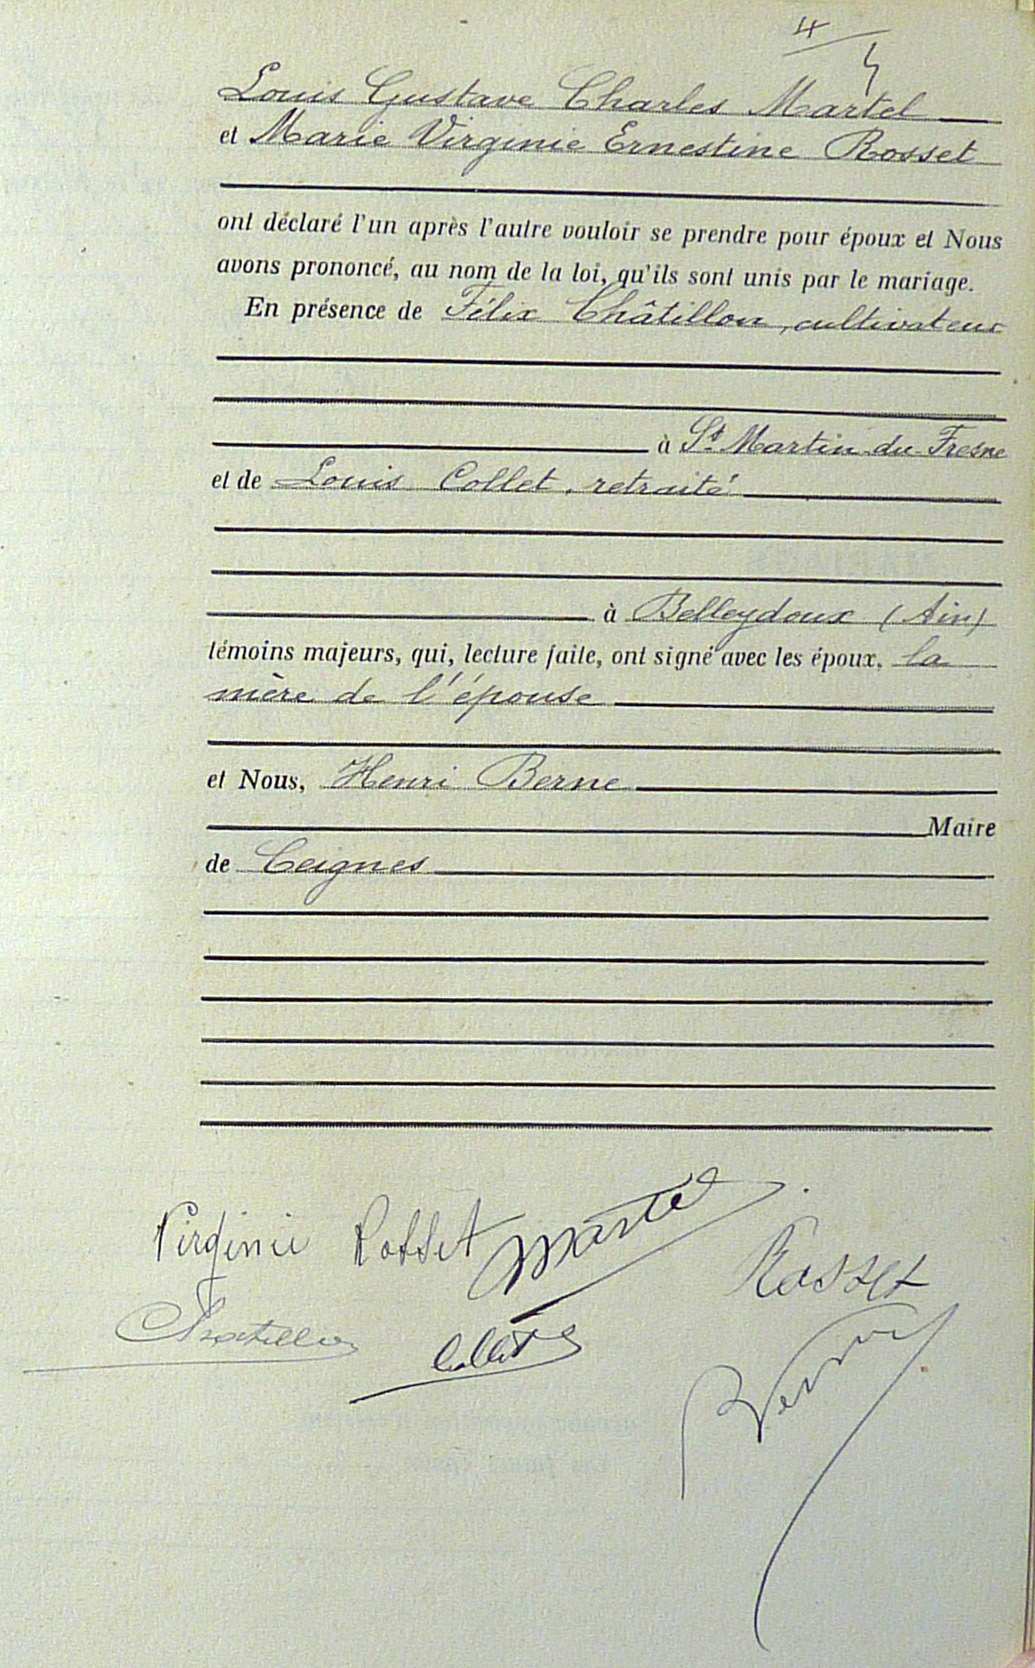 4
Louis Gustave Charles Martel
et Marie Virginie Ernestine Rosset
ont déclaré l'un après l'autre vouloir se prendre pour époux et Nous
avons prononcé, au nom de la loi, qu'ils sont unis par le mariage.
En présence de Félix Châtillon, cultivateur
à St Martin du Fresne
et de Louis Collet, retraité
à Belleydoux (Ain)
témoins majeurs, qui, lecture faite, ont signé avec les époux, la
mère de l'épouse
et Nous, Henri Berne
Maire
de Ceignes
Virginie Rosset Martel Rosset
Chatillon Collet Berne